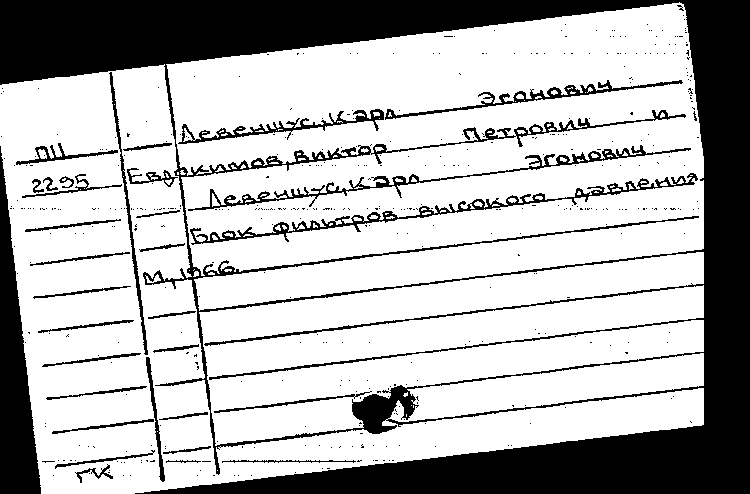 Левеншус, Карл Эгонович
ПЦ
2295 Евдокимов, Виктор Петрович и
Левеншус, Карл Эгонович
Блок фильтров высокого давления.
М., 1966.
ГК